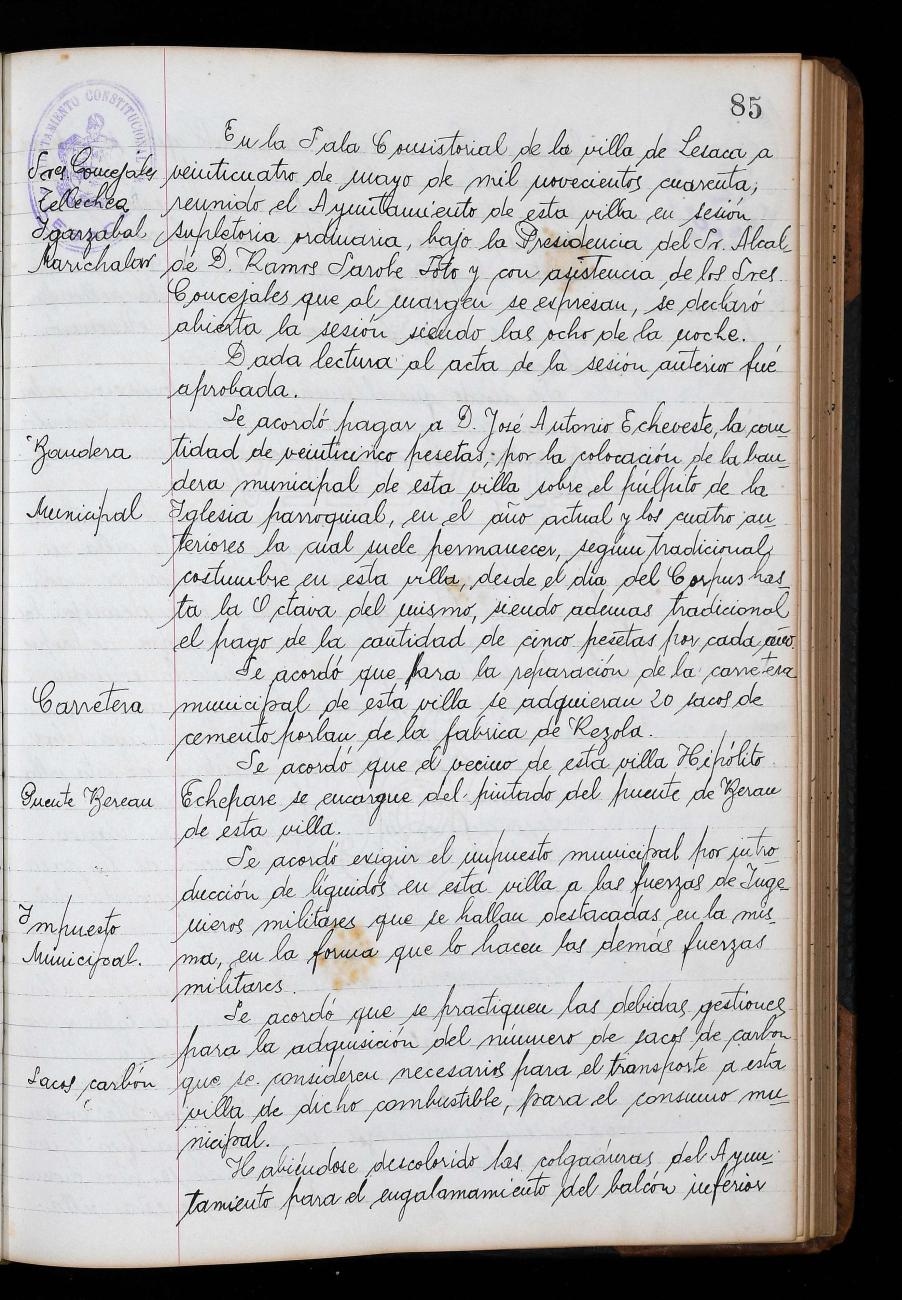 85
AYUNTAMIENTO CONSTITUCIONAL
En la Sala Consistorial de la villa de Lesaca a
Sres. Concejales
veinticuatro de mayo de mil novecientos cuarenta;
Tellechea
reunido el Ayuntamiento de esta villa en sesión
Igarzabal
supletoria ordinaria, bajo la Presidencia del Sr. Alcal-
Marichalar
de D. Ramos Sarobe Foto y con asistencia de los Sres.
Concejales que al margen se expresan, se declaró
abierta la sesión siendo las ocho de la noche.
Dada lectura al acta de la sesión anterior fué
aprobada.
Se acordó pagar a D. José Antonio Echeveste, la can-
Bandera
tidad de veinticinco pesetas, por la colocación de la ban-
dera municipal de esta villa sobre el pulpito de la
Municipal
Iglesia parroquial, en el año actual y los cuatro an-
teriores la cual suele permanecer, según tradicional
costumbre en esta villa, desde el dia del Corpus has-
ta la Octava del mismo, siendo ademas tradicional
el pago de la cantidad de cinco pesetas por cada año.
Se acordó que para la reparación de la carretera
Carretera
municipal de esta villa se adquieran 20 sacos de
cemento porlan, de la fabrica de Rezola.
Se acordó que el vecino de esta villa Hipólito
Puente Berean
Echepare se encargue del pintado del puente de Berau
de esta villa.
Se acordó exigir el impuesto municipal por intro-
ducción de líquidos en esta villa a las fuerzas de Inge-
Impuesto
nieros militares que se hallan destacadas en la mis-
Municipal.
ma, en la forma que lo hacen las demás fuerzas
militares.
Se acordó que se practiquen las debidas gestiones
para la adquisición del número de sacos de carbón
Sacos carbón
que se consideren necesarios para el transporte a esta
villa de dicho combustible, para el consumo mu-
nicipal.
Habiéndose descolorido las colgaduras del Ayun-
tamiento para el engalamamiento del balcón inferior